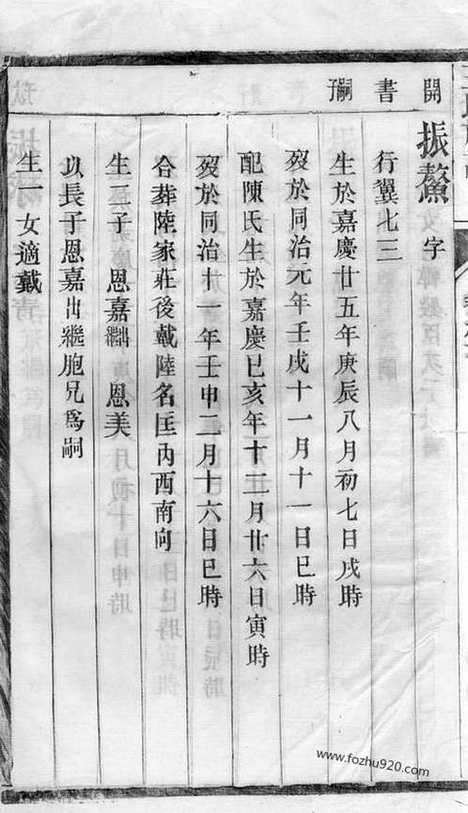 開書嗣
振鰲字
行翼七三
生於嘉慶廿五年庚辰八月初七日戌時
歿於同治元年壬戌十一月十一日巳時
配陳氏生於嘉慶己亥年十二月廿六日寅時
歿於同治十一年壬申二月十六日巳時
合葬陸家莊後戴陸名匡內西南向
生二子 恩嘉出繼 恩美
以長子恩嘉出繼胞兄爲嗣
生一女適戴
www.fozhu920.com